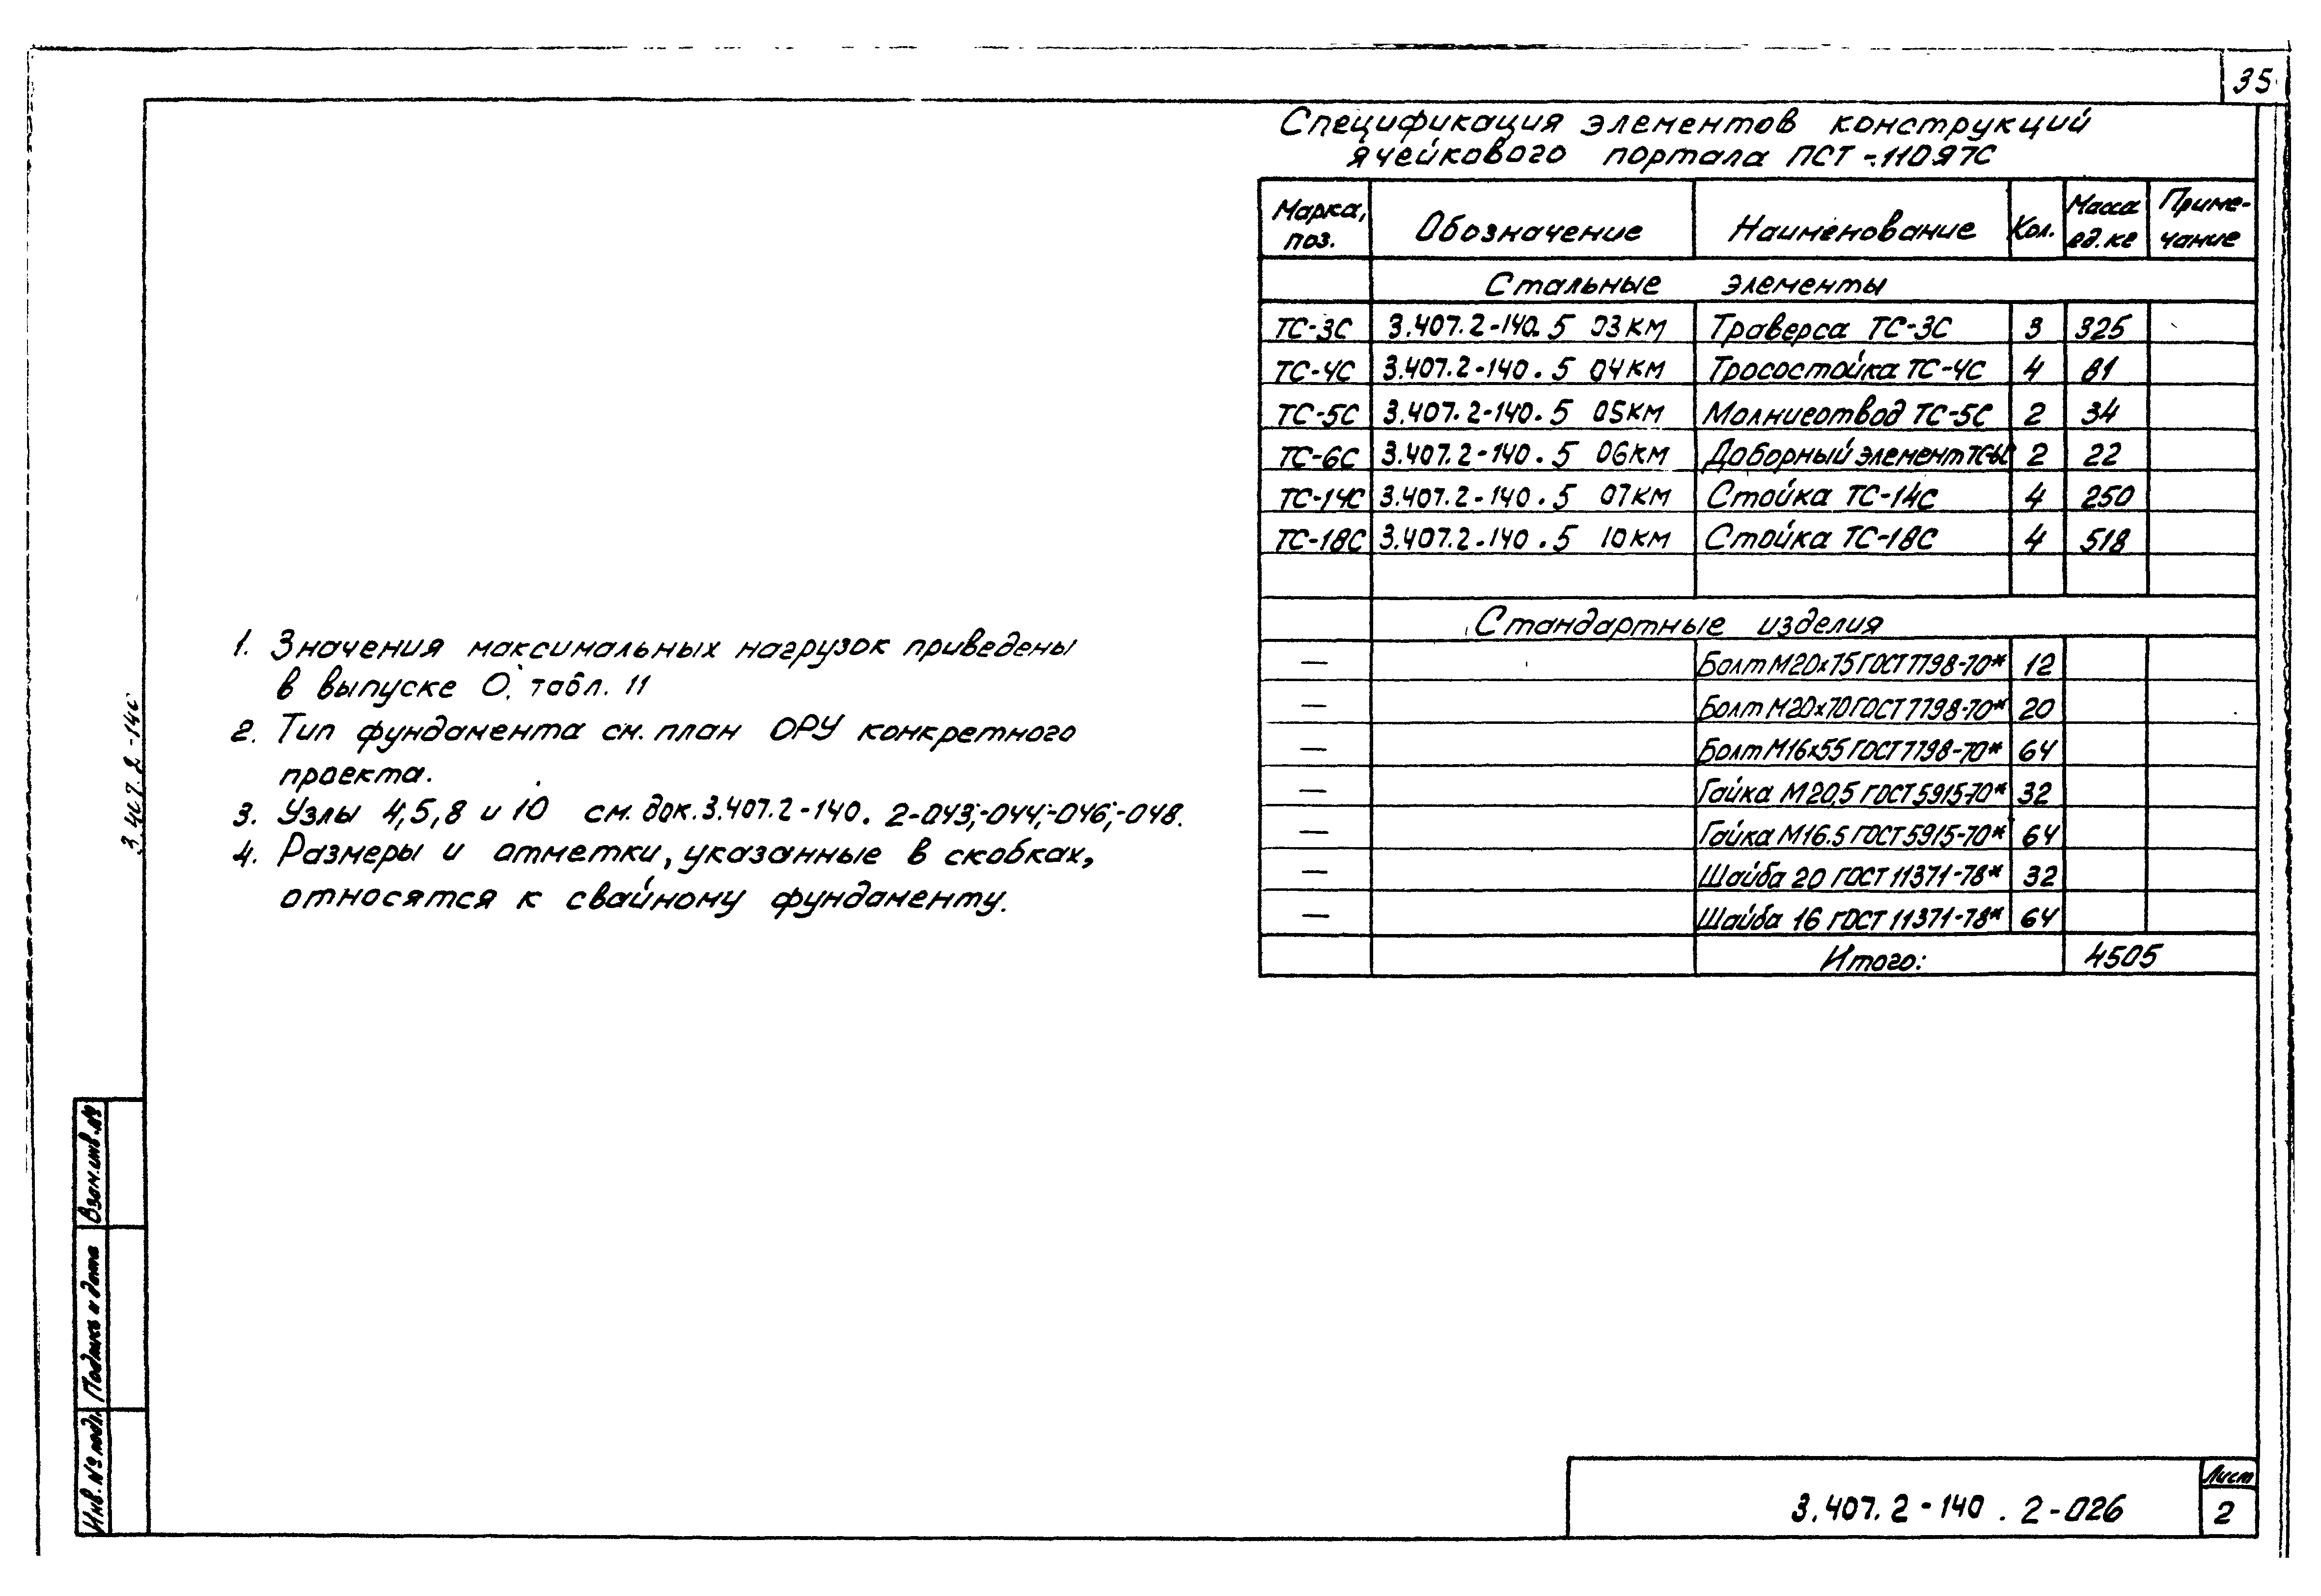 35
Спецификация элементов конструкций
ячейкового портала ПСТ-110Я7С
Марка, поз. Обозначение Наименование Кол. Масса ед. кг Приме-чание
Стальные элементы
ТС-3С 3.407.2-140.5 03КМ Траверса ТС-3С 3 325
ТС-4С 3.407.2-140.5 04КМ Тросостойка ТС-4С 4 81
ТС-5С 3.407.2-140.5 05КМ Молниеотвод ТС-5С 2 34
ТС-6С 3.407.2-140.5 06КМ Доборный элемент ТС-6С 2 22
ТС-14С 3.407.2-140.5 07КМ Стойка ТС-14С 4 250
ТС-18С 3.407.2-140.5 10КМ Стойка ТС-18С 4 518
Стандартные изделия
— Болт М20х75 ГОСТ 7798-70* 12
— Болт М20х70 ГОСТ 7798-70* 20
— Болт М16х55 ГОСТ 7798-70* 64
— Гайка М20,5 ГОСТ 5915-70* 32
— Гайка М16.5 ГОСТ 5915-70* 64
— Шайба 20 ГОСТ 11371-78* 32
— Шайба 16 ГОСТ 11371-78* 64
Итого: 4505
1. Значения максимальных нагрузок приведены
в выпуске 0, табл. 11
2. Тип фундамента см. план ОРУ конкретного
проекта.
3. Узлы 4,5,8 и 10 см. док. 3.407.2-140. 2-043;-044;-046;-048.
4. Размеры и отметки, указанные в скобках,
относятся к свайному фундаменту.
3.407.2-140
Взам. инв. №
Подпись и дата
Инв. № подл.
3.407.2-140.2-026
Лист
2